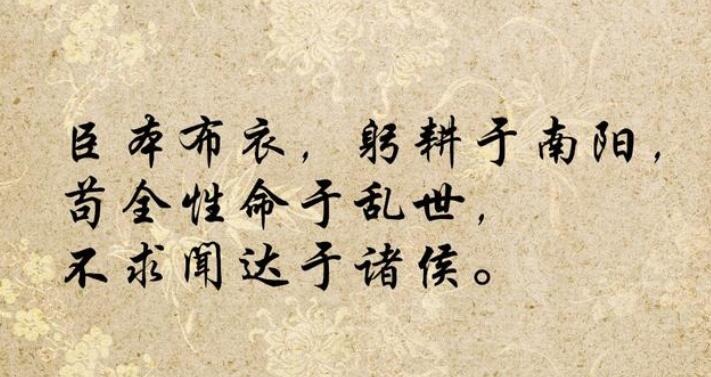 臣本布衣，躬耕于南阳，
苟全性命于乱世，
不求闻达于诸侯。